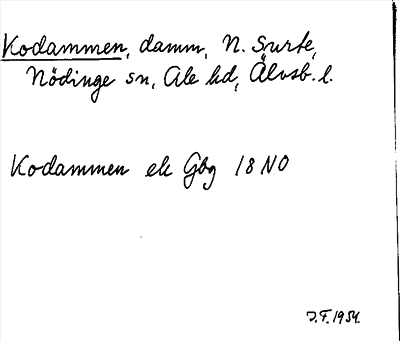 Kodammen, damm, N. Surte,
Nödinge sn, Ale hd, Älvsb. l.
Kodammen ek Gbg 18 NO
J.F. 1954.